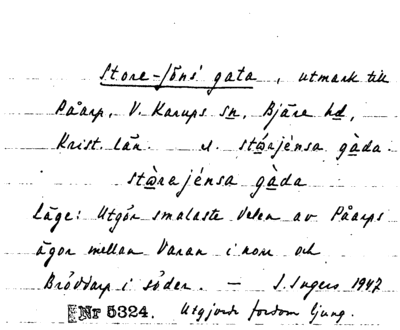 Store-Jöns' gata, utmark till
Påarp, V. Karups sn, Bjäre hd,
Krist. län. u. stὼrajénsa gàda.
stὼrajénsa gàda
Läge: Utgör smalaste delen av Påarps
ägor mellan Varan i norr och
Bröddarp i söder. — S. Ingers 1947
Nr 5324. Utgjorde fordom ljung.